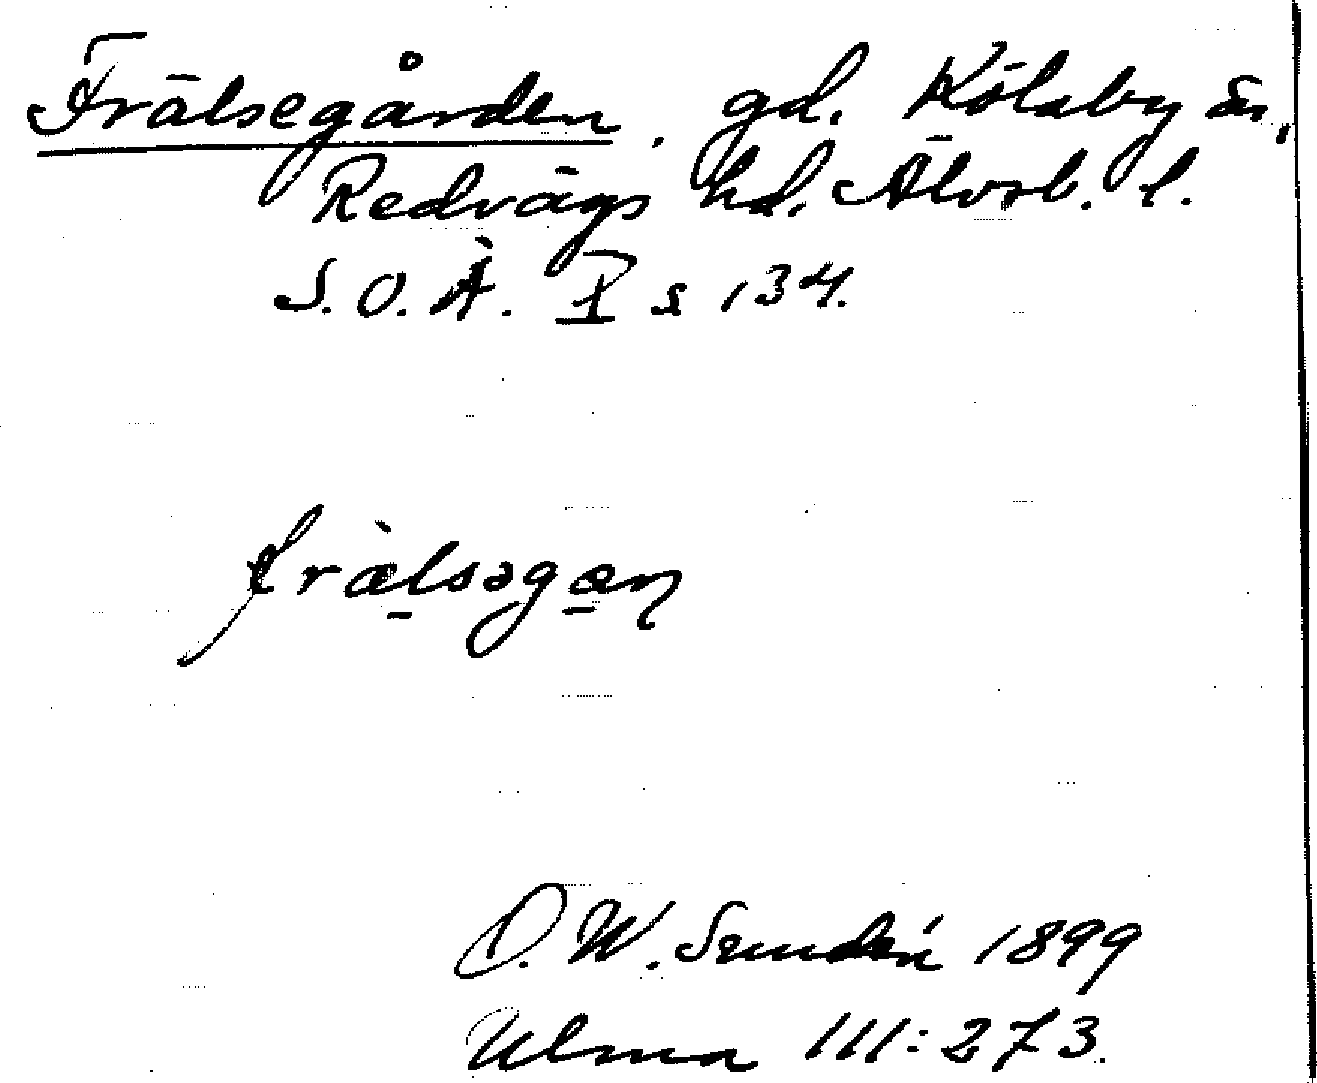 Frälsegården, gd. Kölaby sn,
Redvägs hd. Älvsb. l.
S.O.Å. I s 134.
fràlsəgan
D. W. Sundén 1899
Ulma 111:273.